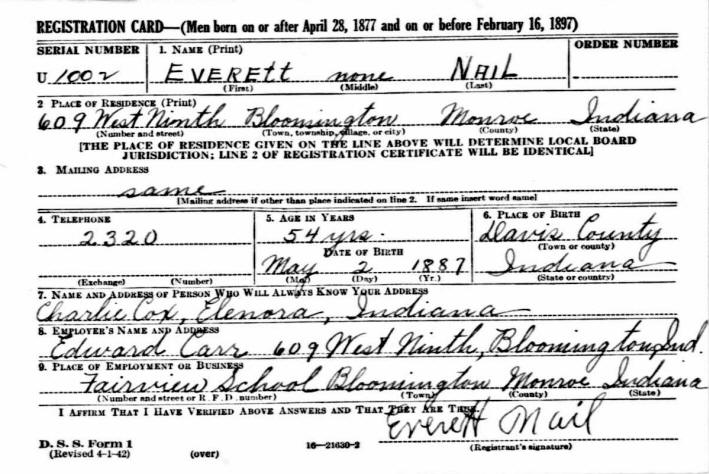 REGISTRATION CARD—(Men born on or after April 28, 1877 and on or before February 16, 1897)
SERIAL NUMBER 1. NAME (Print) ORDER NUMBER
U 1002 EVERETT none NAIL
(First) (Middle) (Last)
2 PLACE OF RESIDENCE (Print)
609 West Ninth Bloomington Monroe Indiana
(Number and street) (Town, township, village, or city) (County) (State)
[THE PLACE OF RESIDENCE GIVEN ON THE LINE ABOVE WILL DETERMINE LOCAL BOARD
JURISDICTION; LINE 2 OF REGISTRATION CERTIFICATE WILL BE IDENTICAL]
3. MAILING ADDRESS
same
[Mailing address if other than place indicated on line 2. If same insert word same]
4. TELEPHONE 5. AGE IN YEARS 6. PLACE OF BIRTH
2320 54 yrs. Davis County
DATE OF BIRTH (Town or county)
May 2 1887 Indiana
(Exchange) (Number) (Mo.) (Day) (Yr.) (State or country)
7. NAME AND ADDRESS OF PERSON WHO WILL ALWAYS KNOW YOUR ADDRESS
Charlie Cox, Elenora, Indiana
8. EMPLOYER'S NAME AND ADDRESS
Edward Carr 609 West Ninth, Bloomington, Ind.
9. PLACE OF EMPLOYMENT OR BUSINESS
Fairview School Bloomington Monroe Indiana
(Number and street or R. F. D. number) (Town) (County) (State)
I AFFIRM THAT I HAVE VERIFIED ABOVE ANSWERS AND THAT THEY ARE TRUE.
Everett Nail
D. S. S. Form 1 16—21630-2 (Registrant's signature)
(Revised 4-1-42) (over)